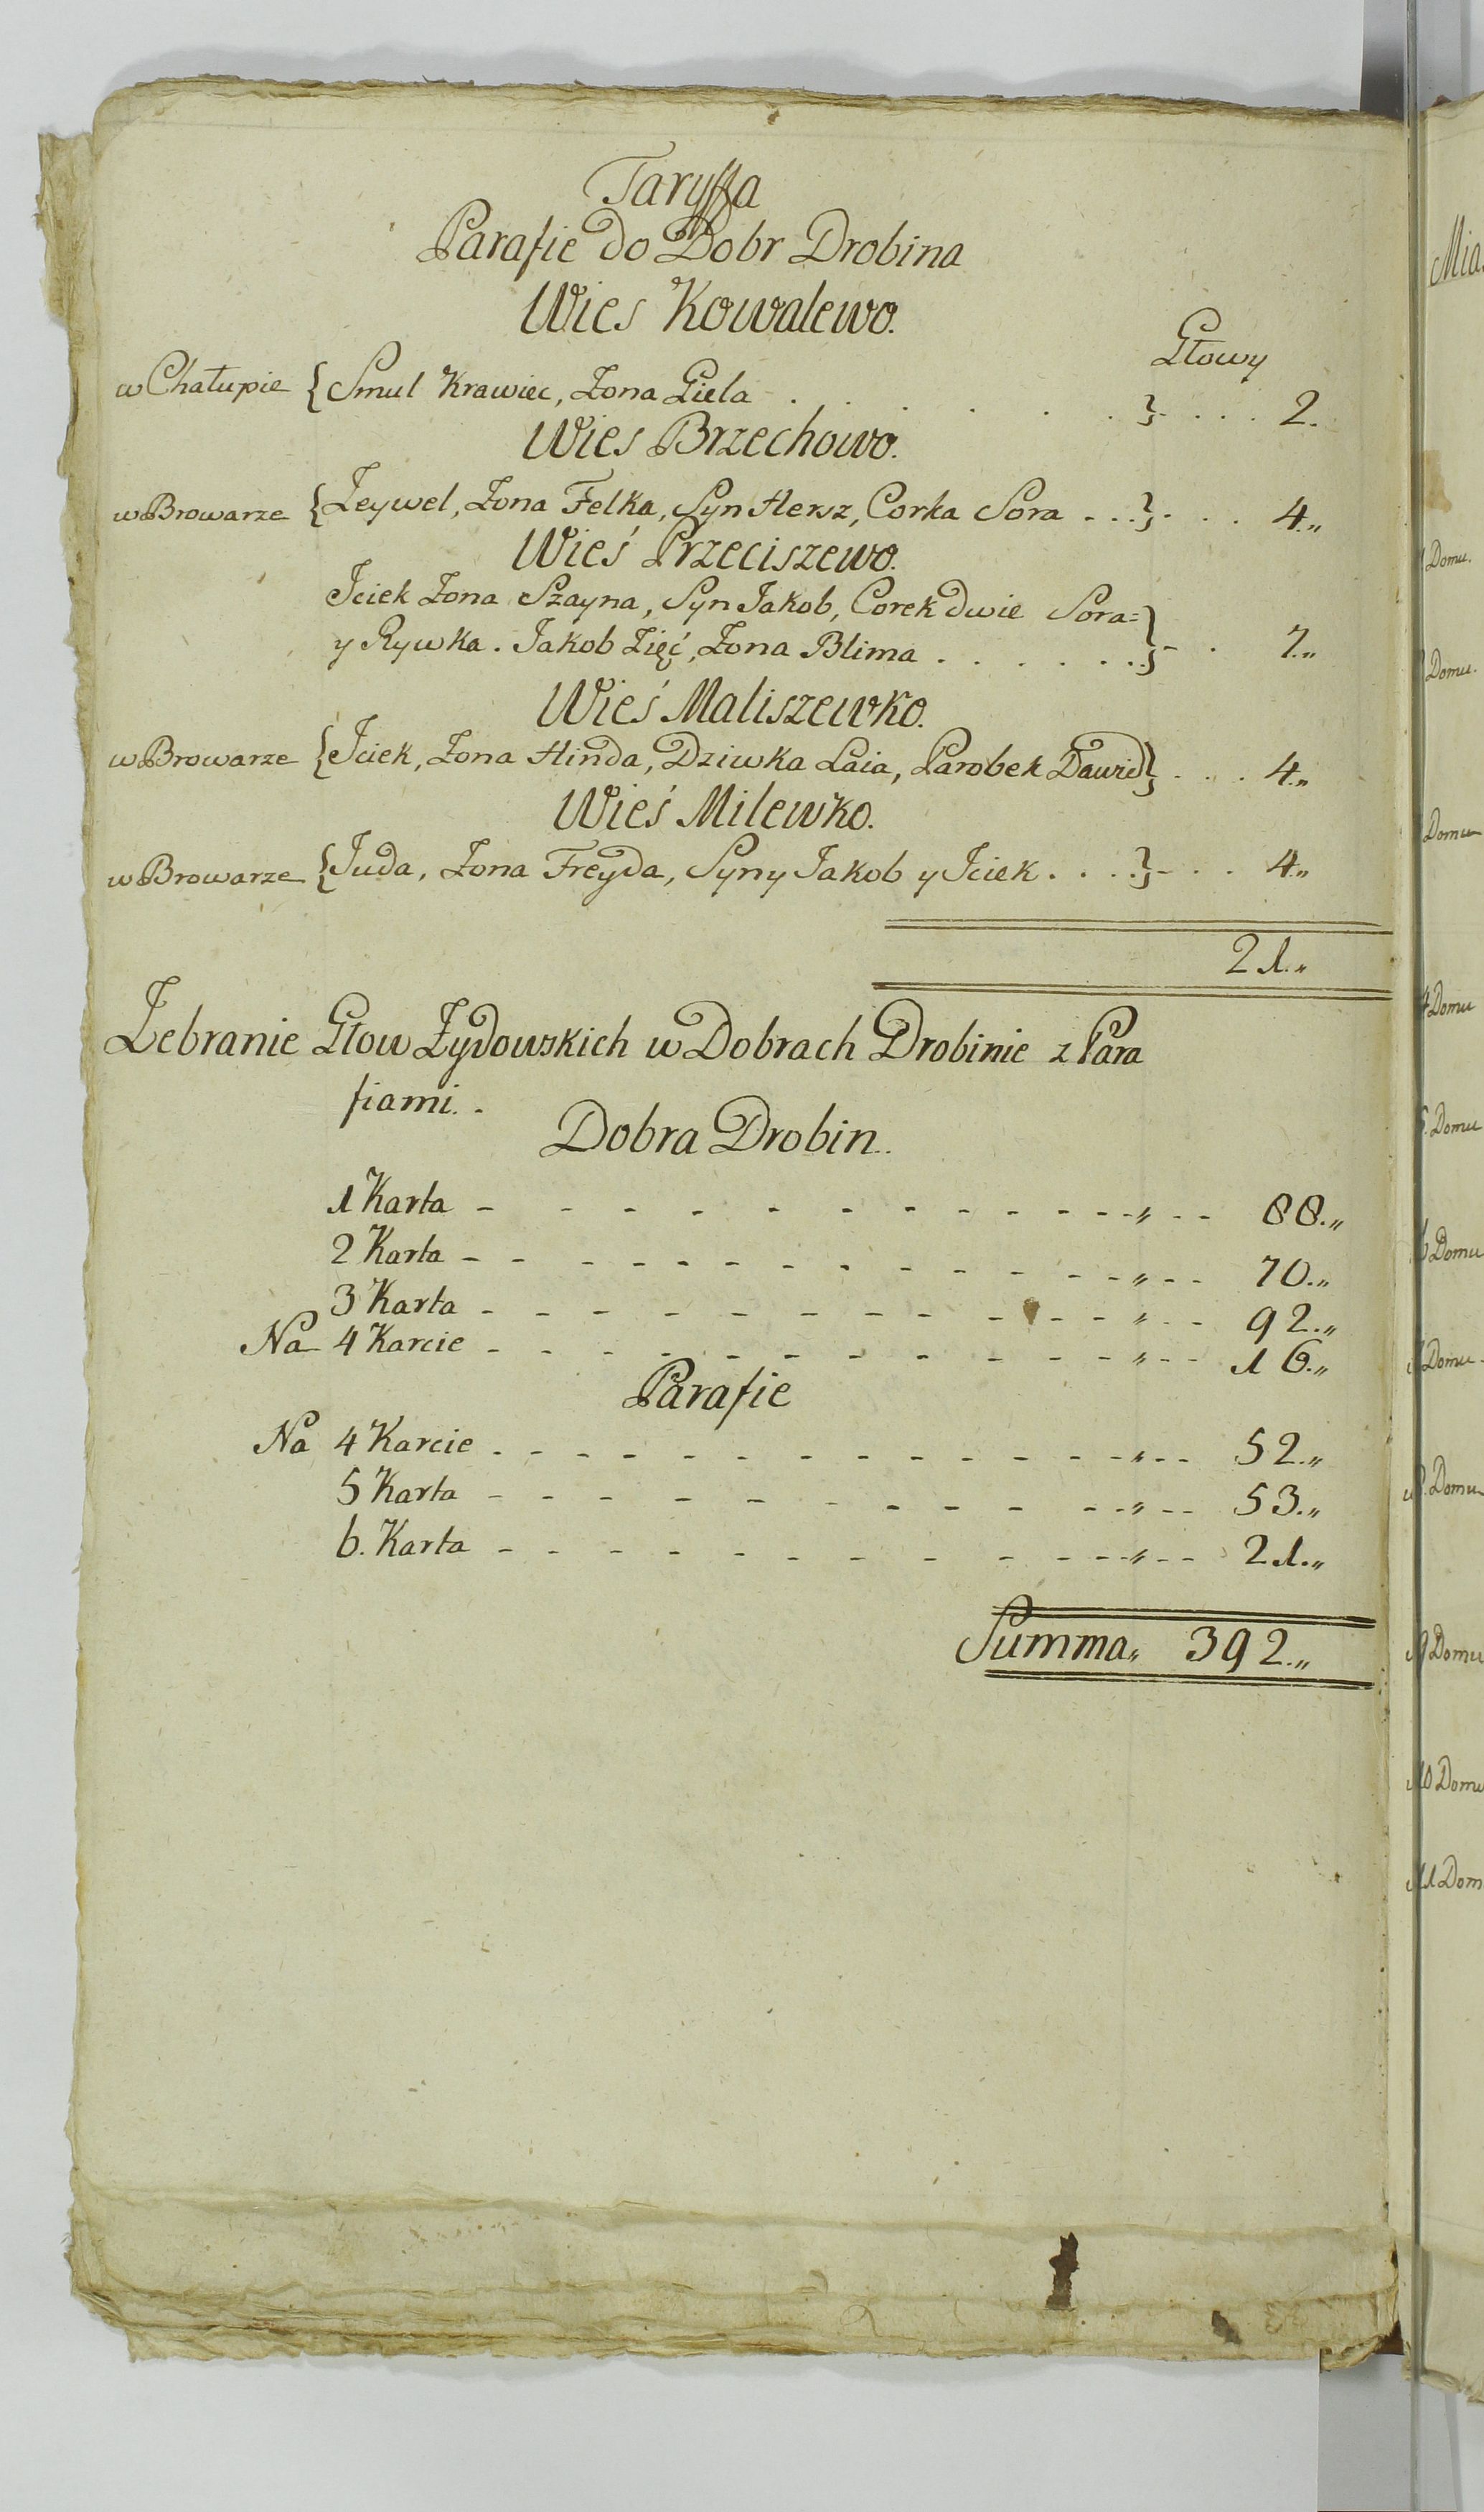 Taryffa
Parafie do Dobr Drobina
Wies Kowalewo.
Głowy
w Chałupie { Smul Krawiec, Zona Giela . . . . . . } . . . . 2.
Wies Brzechowo.
w Browarze { Zeywel, Zona Felka, Syn Hersz, Corka Sora . . . } . . . 4.„
Wieś Przeciszewo.
Jciek Zona Szayna, Syn Jakob, Corek dwie Sora=
y Rywka. Jakob Zięć, Zona Blima . . . . . . } - . 7.„
Wieś Maliszewko.
w Browarze { Jciek, Zona Hinda, Dziwka Laia, Parobek Dawid } . . . 4.„
Wieś Milewko.
w Browarze { Juda, Zona Freyda, Syny Jakob y Jciek . . . . } - . . 4.„
21.„
Zebranie Głow Zydowskich w Dobrach Drobinie z Para
fiami. .
Dobra Drobin.
1 Karta - - - - - - - - - - - „ - - 88.„
2 Karta - - - - - - - - - - - „ - - 70.„
3 Karta - - - - - - - - - - - „ - - 92.„
Na 4 Karcie - - - - - - - - - - „ - - 16.„
Parafie
Na 4 Karcie - - - - - - - - - - „ - - 52.„
5 Karta - - - - - - - - - - „ - - 53.„
6. Karta - - - - - - - - - - „ - - 21.„
Summa„ 392.„
Mia
Domu.
Domu.
Domu
4 Domu
5. Domu
6 Domu
Domu
Domu
9 Domu
10 Domu
11 Dom